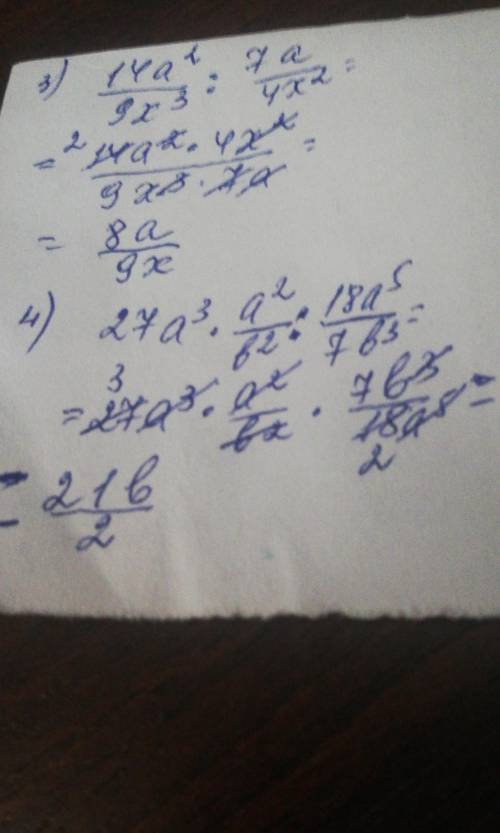 3) 14a²/9x³ : 7a/4x² =
= ² 14a² · 4x²/9x³ · 7a =
= 8a/9x
4) 27a³ · a²/в² : 18a⁵/7в³ =
= ³ 27a³ · a²/в² · 7в³/18a⁵ 2 =
= 21в/2